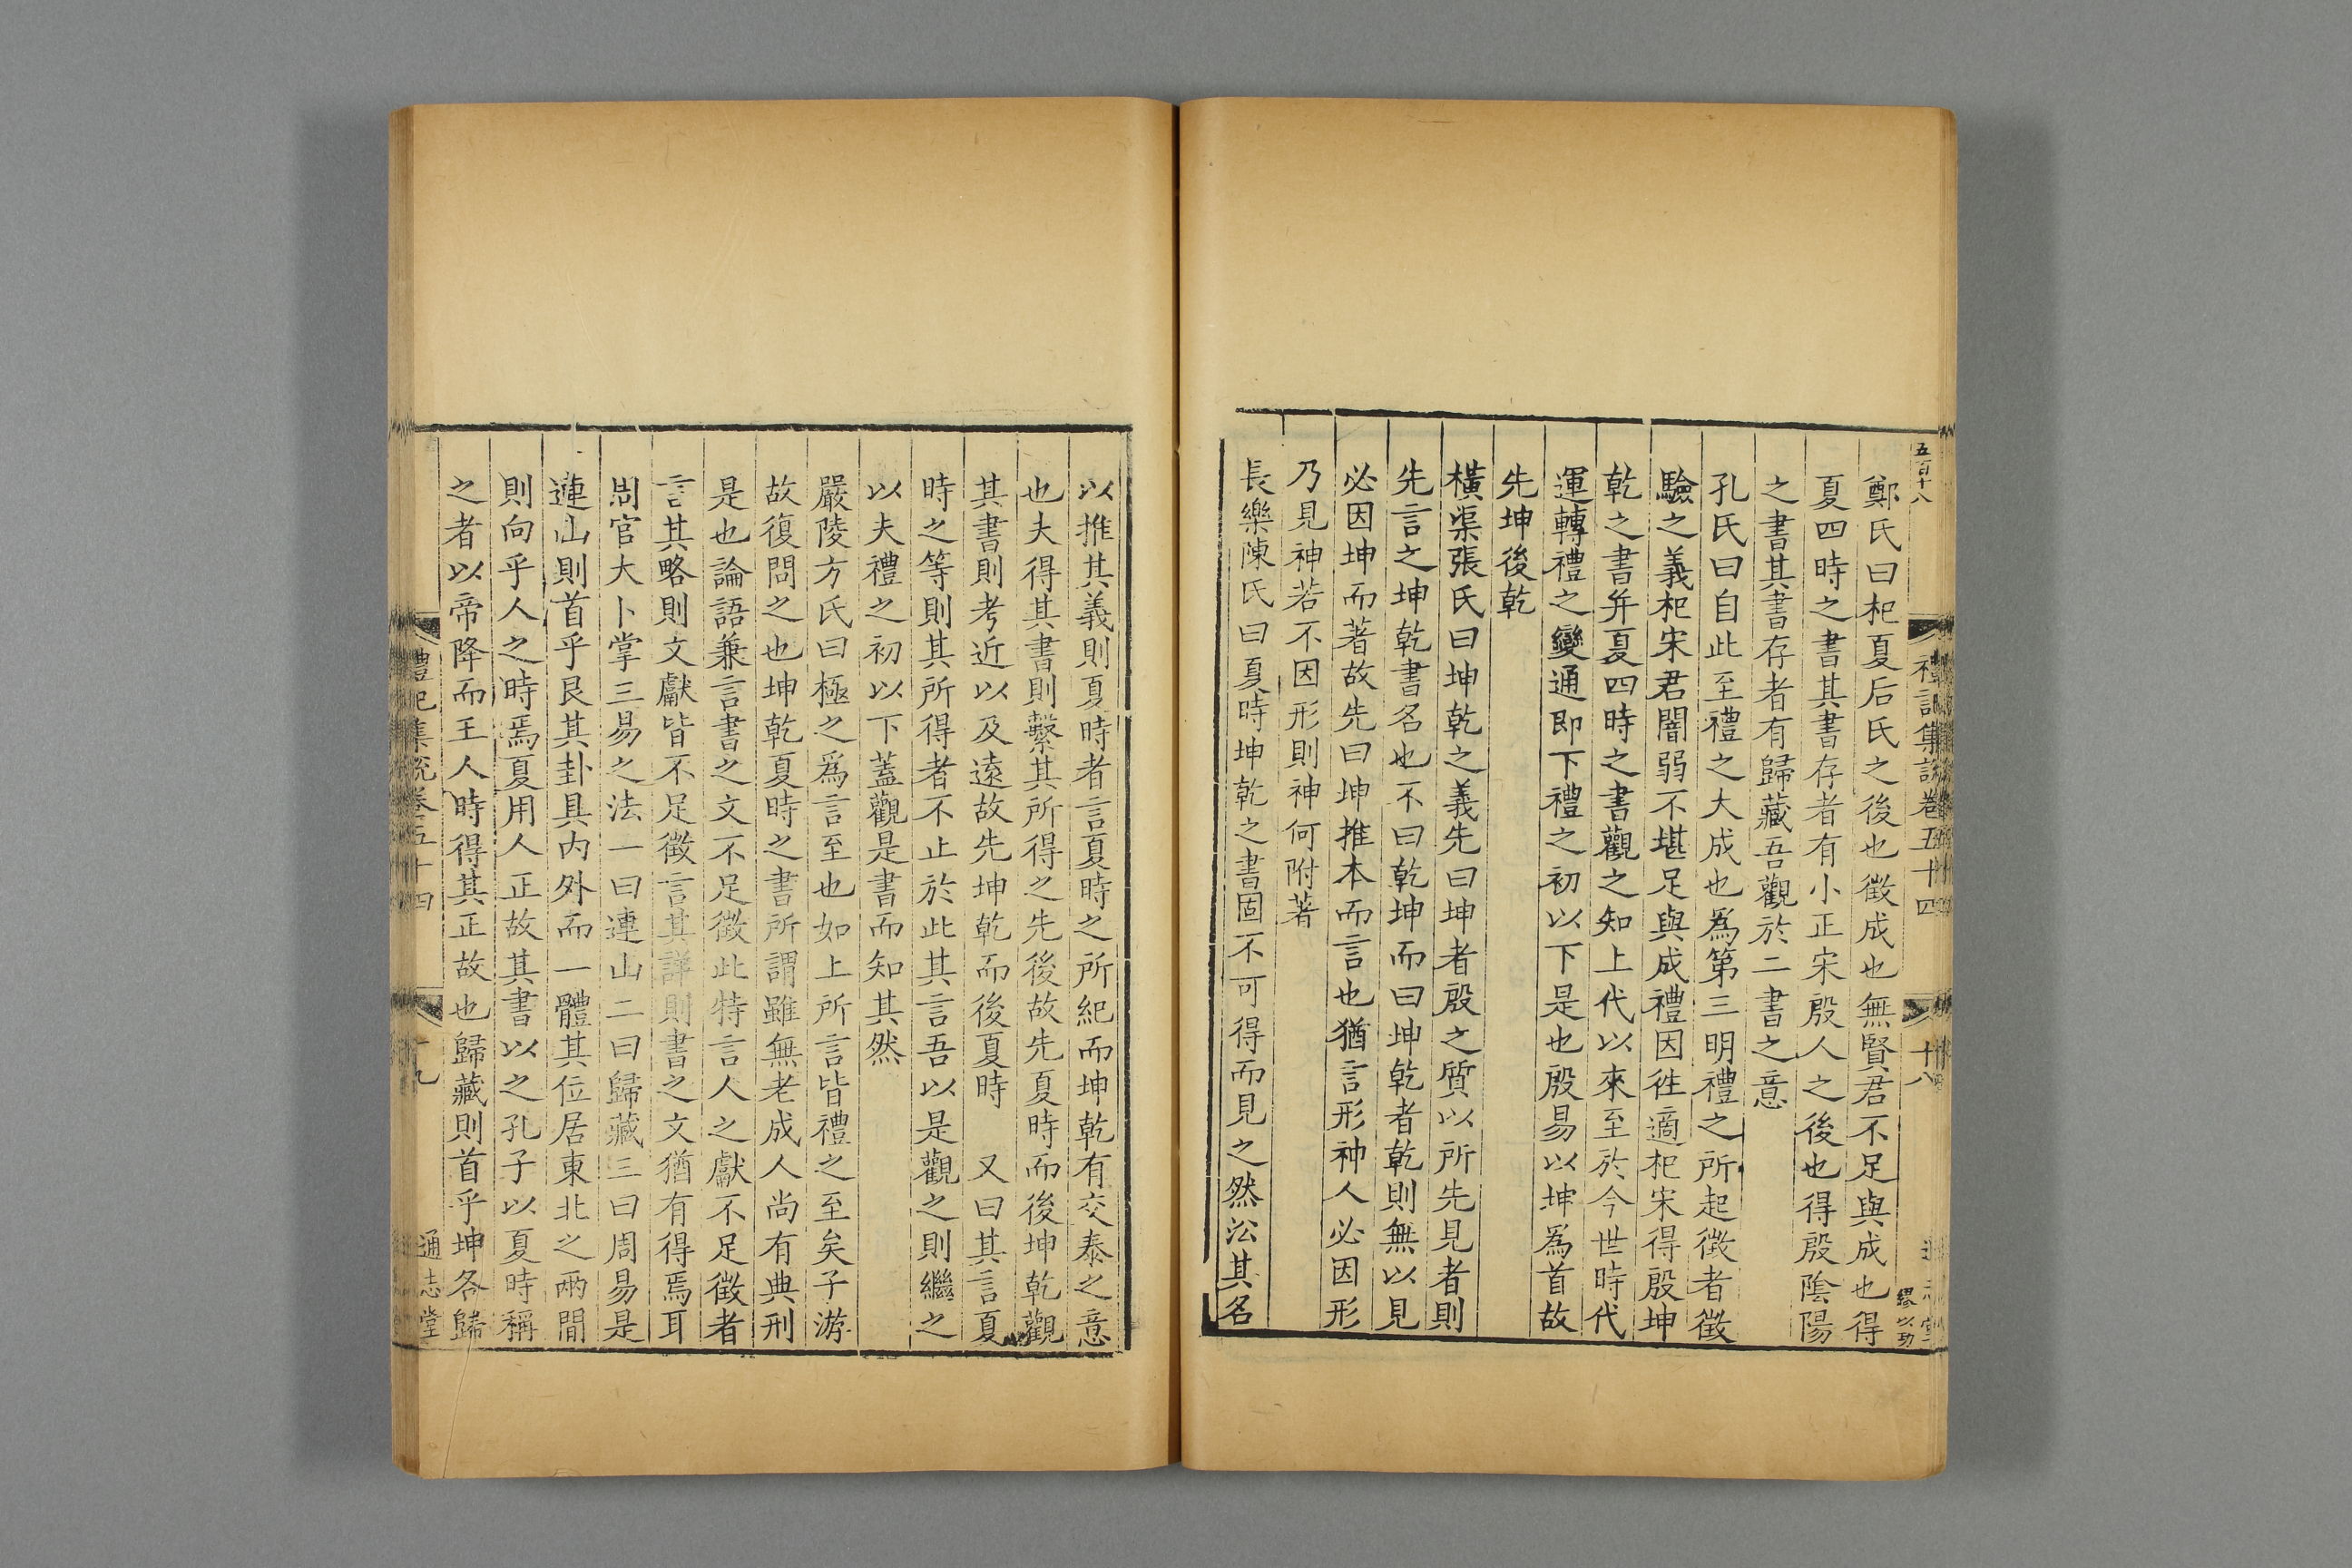 五百十八
禮記集說卷五十四
十八
繆以功
鄭氏曰杞夏后氏之後也徵成也無賢君不足與成也得
夏四時之書其書存者有小正宋殷人之後也得殷陰陽
之書其書存者有歸藏吾觀於二書之意
孔氏曰自此至禮之大成也爲第三明禮之所起徵者徵
驗之義杞宋君闇弱不堪足與成禮因徃適杞宋得殷坤
乾之書并夏四時之書觀之知上代以來至於今世時代
運轉禮之變通即下禮之初以下是也殷易以坤爲首故
先坤後乾
橫渠張氏曰坤乾之義先曰坤者殷之質以所先見者則
先言之坤乾書名也不曰乾坤而曰坤乾者乾則無以見
必因坤而著故先曰坤推本而言也猶言形神人必因形
乃見神若不因形則神何附著
長樂陳氏曰夏時坤乾之書固不可得而見之然㳂其名
以推其義則夏時者言夏時之所紀而坤乾有交泰之意
也夫得其書則繫其所得之先後故先夏時而後坤乾觀
其書則考近以及遠故先坤乾而後夏時　又曰其言夏
時之等則其所得者不止於此其言吾以是觀之則繼之
以夫禮之初以下蓋觀是書而知其然
嚴陵方氏曰極之爲言至也如上所言皆禮之至矣子游
故復問之也坤乾夏時之書所謂雖無老成人尚有典刑
是也論語兼言書之文不足徵此特言人之獻不足徵者
言其略則文獻皆不足徵言其詳則書之文猶有得焉耳
周官大卜掌三易之法一曰連山二曰歸藏三曰周易是
連山則首乎艮其卦具内外而一體其位居東北之兩間
則向乎人之時焉夏用人正故其書以之孔子以夏時稱
之者以帝降而王人時得其正故也歸藏則首乎坤各歸
禮記集說卷五十四
十九
通志堂